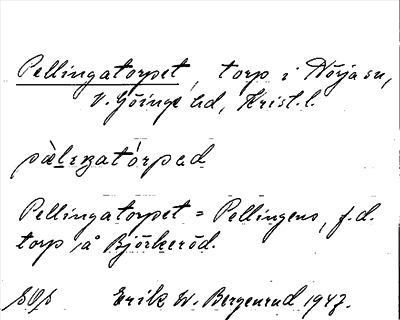 Pellingatorpet, torp i Nörja sn,
V. Göinge hd, Krist. l.
pèleŋatórpəd
Pellingatorpet = Pellingens, f.d.
torp å Björkeröd.
Erik W. Bergenrud 1947.